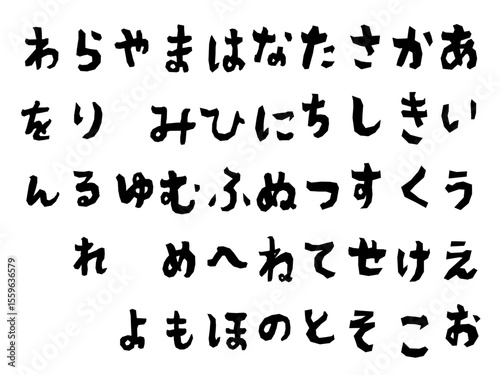 あいうえお
かきくけこ
さしすせそ
たちつてと
なにぬねの
はひふへほ
まみむめも
やゆよ
らりるれ
わをん
Adobe Stock | #1559636579